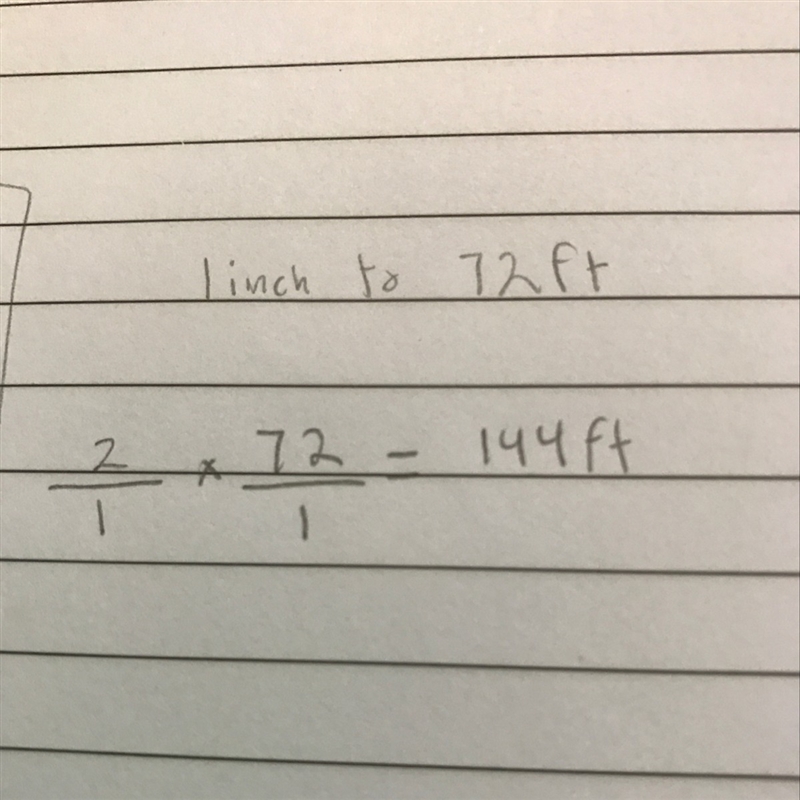 1 inch to 72ft
2/1 × 72/1 = 144ft